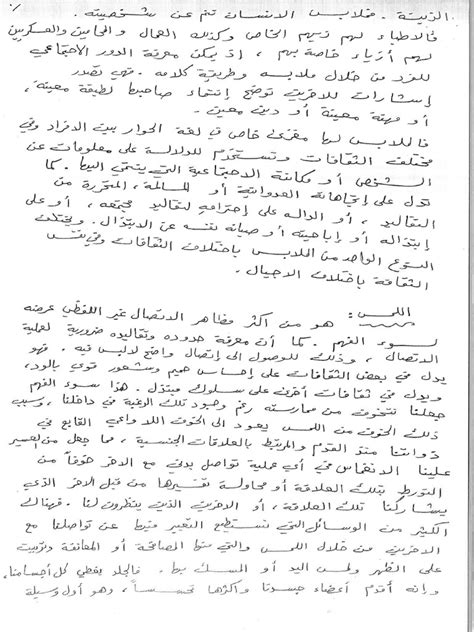 الزينة. فملابس الانسان تنم عن شخصيته.
فالاطباء لهم زيهم الخاص وكذلك العمال والمحامين والعسكريين
لهم أزياء خاصة بهم، إذ يمكن معرفة الدور الاجتماعي
للفرد من خلال ملابسه وطريقة كلامه. فهي تصدر
إشارات للآخرين توضح إنتماء صاحبها لطبقة معينة،
أو مهنة معينة أو دين معين.
فالملابس لها مغزى خاص في لغة الحوار بين الافراد وفي
مختلف الثقافات وتستخدم للدلالة على معلومات عن
الشخص أو مكانته الاجتماعية التي ينتمي اليها. كما
تدل على إتجاهاته العدوانية أو المسالمة، المتحررة من
التقاليد، أو الدالة على إحترامه لتقاليد مجتمعه، أو على
إبتذاله أو إباحيته أو صيانة نفسه عن الابتذال. ويختلف
النوع الواحد من الملابس باختلاف الثقافات وفي نفس
الثقافة باختلاف الاجيال.
اللمس: هو من أكثر مظاهر الاتصال غير اللفظي عرضة
لسوء الفهم. كما أن معرفة حدوده وتقاليده ضرورية لعملية
الاتصال، وذلك للوصول الى إتصال واضح لا لبس فيه. فهو
يدل في بعض الثقافات على إحساس حميم وشعور قوي بالود،
ويدل في ثقافات أخرى على سلوك مبتذل. هذا سوء الفهم
جعلنا نتخوف من ممارسته رغم وجود تلك الرغبة في داخلنا، وسبب
ذلك الخوف من اللمس يعود الى الخوف اللاواعي القابع في
ذواتنا منذ القدم والمرتبط بالعلاقات الجنسية، مما جعل من العسير
علينا الانغماس في أي عملية تواصل بدني مع الآخر خوفاً من
التورط بتلك العلاقة أو محاولة تفسيرها من قبل الآخر الذي
يشاركنا تلك العلاقة، أو الآخرين الذين ينظرون لنا. فهناك
الكثير من الوسائل التي نستطيع التعبير فيها عن تواصلنا مع
الآخرين من خلال اللمس والتي منها المصافحة أو المعانقة والتربيت
على الظهر ولمس اليد أو المسك بها. فالجلد يغطي كل أجسامنا،
وإنه أقدم أعضاء جسدنا وأكثرها تحسساً، وهو أول وسيلة